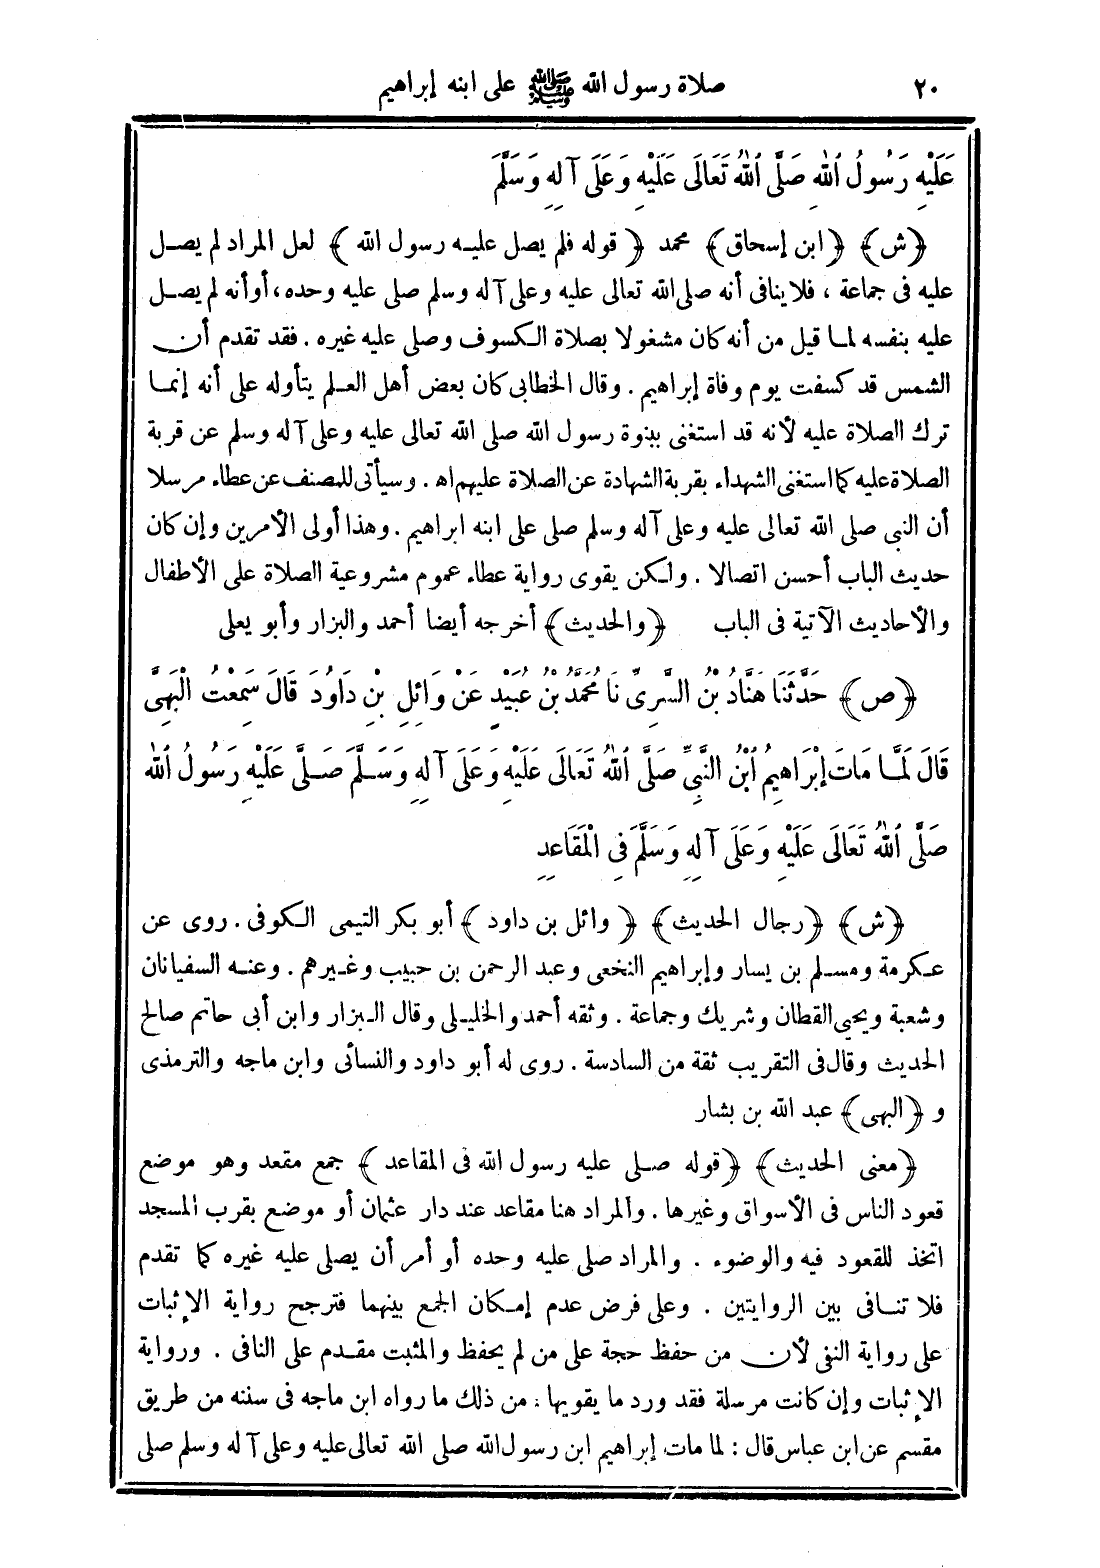 ٢٠ صلاة رسول الله ﷺ على ابنه إبراهيم
عَلَيْهِ رَسُولُ ٱللهِ صَلَّى ٱللهُ تَعَالَى عَلَيْهِ وَعَلَى آلِهِ وَسَلَّمَ
﴿ش﴾ ﴿ابن إسحاق﴾ محمد ﴿قوله فلم يصل عليه رسول الله﴾ لعل المراد لم يصل
عليه فى جماعة ، فلا ينافى أنه صلى الله تعالى عليه وعلى آله وسلم صلى عليه وحده، أو أنه لم يصل
عليه بنفسه لما قيل من أنه كان مشغولا بصلاة الكسوف وصلى عليه غيره . فقد تقدم أن
الشمس قد كسفت يوم وفاة إبراهيم . وقال الخطابى كان بعض أهل العلم يتأوله على أنه إنما
ترك الصلاة عليه لأنه قد استغنى ببنوة رسول الله صلى الله تعالى عليه وعلى آله وسلم عن قربة
الصلاة عليه كما استغنى الشهداء بقربة الشهادة عن الصلاة عليهم اه . وسيأتى للمصنف عن عطاء مرسلا
أن النبى صلى الله تعالى عليه وعلى آله وسلم صلى على ابنه ابراهيم . وهذا أولى الأمرين وإن كان
حديث الباب أحسن اتصالا . ولكن يقوى رواية عطاء عموم مشروعية الصلاة على الأطفال
والأحاديث الآتية فى الباب ﴿والحديث﴾ أخرجه أيضا أحمد والبزار وأبو يعلى
﴿ص﴾ حَدَّثَنَا هَنَّادُ بْنُ السَّرِىِّ نَا مُحَمَّدُ بْنُ عُبَيْدٍ عَنْ وَائِلِ بْنِ دَاوُدَ قَالَ سَمِعْتُ الْبَهِىَّ
قَالَ لَمَّا مَاتَ إِبْرَاهِيمُ ٱبْنُ النَّبِىِّ صَلَّى ٱللهُ تَعَالَى عَلَيْهِ وَعَلَى آلِهِ وَسَلَّمَ صَلَّى عَلَيْهِ رَسُولُ ٱللهِ
صَلَّى ٱللهُ تَعَالَى عَلَيْهِ وَعَلَى آلِهِ وَسَلَّمَ فِى الْمَقَاعِدِ
﴿ش﴾ ﴿رجال الحديث﴾ ﴿وائل بن داود﴾ أبو بكر التيمى الكوفى . روى عن
عكرمة ومسلم بن يسار وإبراهيم النخعى وعبد الرحمن بن حبيب وغيرهم . وعنه السفيانان
وشعبة ويحيى القطان وشريك وجماعة . وثقه أحمد والخليلى وقال البزار وابن أبى حاتم صالح
الحديث وقال فى التقريب ثقة من السادسة . روى له أبو داود والنسائى وابن ماجه والترمذى
و ﴿البهى﴾ عبد الله بن بشار
﴿معنى الحديث﴾ ﴿قوله صلى عليه رسول الله فى المقاعد﴾ جمع مقعد وهو موضع
قعود الناس فى الأسواق وغيرها . والمراد هنا مقاعد عند دار عثمان أو موضع بقرب المسجد
اتخذ للقعود فيه والوضوء . والمراد صلى عليه وحده أو أمر أن يصلى عليه غيره كما تقدم
فلا تنافى بين الروايتين . وعلى فرض عدم إمكان الجمع بينهما فترجح رواية الإثبات
على رواية النفى لأن من حفظ حجة على من لم يحفظ والمثبت مقدم على النافى . ورواية
الإثبات وإن كانت مرسلة فقد ورد ما يقويها : من ذلك ما رواه ابن ماجه فى سننه من طريق
مقسم عن ابن عباس قال : لما مات إبراهيم ابن رسول الله صلى الله تعالى عليه وعلى آله وسلم صلى